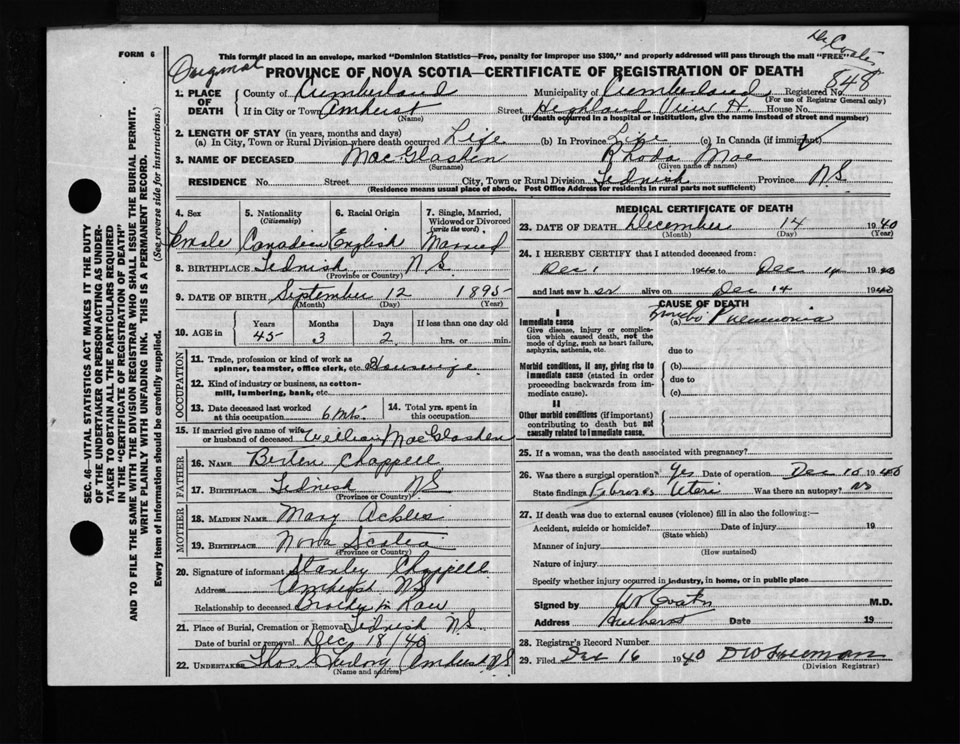 Dr. Coates
FORM 6
This form if placed in an envelope, marked "Dominion Statistics—Free, penalty for improper use $300," and properly addressed will pass through the mail "FREE"
Original
PROVINCE OF NOVA SCOTIA—CERTIFICATE OF REGISTRATION OF DEATH
848
1. PLACE OF DEATH
County of Cumberland Municipality of Cumberland Registered No.
(For use of Registrar General only)
If in City or Town Amherst Street Highland View H. House No.
(Name) (If death occurred in a hospital or institution, give the name instead of street and number)
2. LENGTH OF STAY (in years, months and days)
(a) In City, Town or Rural Division where death occurred Life (b) In Province Life (c) In Canada (if immigrant)
3. NAME OF DECEASED MacGlashen Rhoda Mae
(Surname) (Given name or names)
RESIDENCE No. Street City, Town or Rural Division Tidnish Province N.S.
(Residence means usual place of abode. Post Office Address for residents in rural parts not sufficient)
4. Sex 5. Nationality (Citizenship) 6. Racial Origin 7. Single, Married, Widowed or Divorced (write the word)
emale Canadian English Married
8. BIRTHPLACE Tidnish N.S.
(Province or Country)
9. DATE OF BIRTH September 12 1895
(Month) (Day) (Year)
10. AGE in Years Months Days If less than one day old
45 3 2 hrs. or min.
OCCUPATION
11. Trade, profession or kind of work as spinner, teamster, office clerk, etc. Housewife
12. Kind of industry or business, as cotton-mill, lumbering, bank, etc.
13. Date deceased last worked at this occupation 6 Mts. 14. Total yrs. spent in this occupation
15. If married give name of wife or husband of deceased William MacGlashen
FATHER
16. NAME Chappell
17. BIRTHPLACE Tidnish NS
(Province or Country)
MOTHER
18. MAIDEN NAME Mary Ackles
19. BIRTHPLACE Nova Scotia
(Province or Country)
20. Signature of informant Stanley Chappell
Address Amherst NS
Relationship to deceased Brother in Law
21. Place of Burial, Cremation or Removal Tidnish N.S.
Date of burial or removal Dec 18/40
22. UNDERTAKER Thos Amherst NS
(Name and address)
MEDICAL CERTIFICATE OF DEATH
23. DATE OF DEATH December 14 1940
(Month) (Day) (Year)
24. I HEREBY CERTIFY that I attended deceased from:
Dec 1 1940 to Dec 14 1940
and last saw her alive on Dec 14 1940
CAUSE OF DEATH
I
Immediate cause (a) Broncho Pneumonia
Give disease, injury or complication which caused death, not the mode of dying, such as heart failure, asphyxia, asthenia, etc.
due to
Morbid conditions, if any, giving rise to immediate cause (stated in order proceeding backwards from immediate cause).
(b)
due to
(c)
II
Other morbid conditions (if important) contributing to death but not causally related to immediate cause.
25. If a woman, was the death associated with pregnancy?
26. Was there a surgical operation? Yes Date of operation Dec 10 1940
State findings Uteri Was there an autopsy? no
27. If death was due to external causes (violence) fill in also the following:—
Accident, suicide or homicide? Date of injury 19
(State which)
Manner of injury
(How sustained)
Nature of injury
Specify whether injury occurred in industry, in home, or in public place
Signed by M.D.
Address Amherst Date 19
28. Registrar's Record Number
29. Filed Dec 16 1940 D W Freeman
(Division Registrar)
SEC. 46—VITAL STATISTICS ACT MAKES IT THE DUTY
OF THE UNDERTAKER OR PERSON ACTING AS UNDER-
TAKER TO OBTAIN ALL THE PARTICULARS REQUIRED
IN THE "CERTIFICATE OF REGISTRATION OF DEATH"
AND TO FILE THE SAME WITH THE DIVISION REGISTRAR WHO SHALL ISSUE THE BURIAL PERMIT.
WRITE PLAINLY WITH UNFADING INK. THIS IS A PERMANENT RECORD.
Every item of information should be carefully supplied. (See reverse side for instructions.)